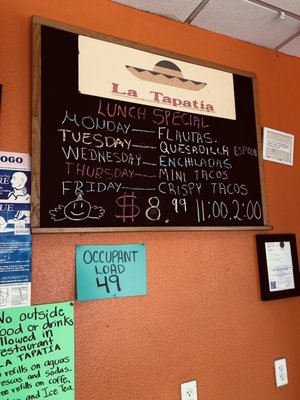 La Tapatía
LUNCH SPECIAL
MONDAY — FLAUTAS
TUESDAY — QUESADILLA ESPECIAL
WEDNESDAY — ENCHILADAS
THURSDAY — MINI TACOS
FRIDAY — CRISPY TACOS
$8.99 11:00-2:00
OCCUPANT
LOAD
49
No outside
food or drinks
allowed in
restaurant
LA TAPATIA
refills on aguas
frescas and sodas.
refills on coffe,
and Ice Tea